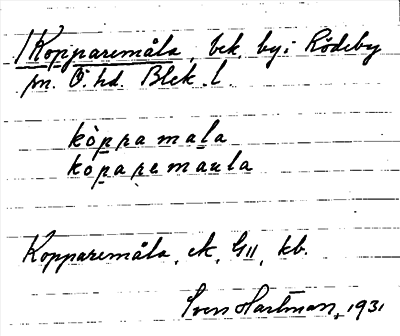 Kopparemåla, bek. by i Rödeby
sn. Ö. hd. Blek. l.
kòppa måla
kòparemåula
Kopparemåla, ek, GII, kb.
Sven Hartman, 1931